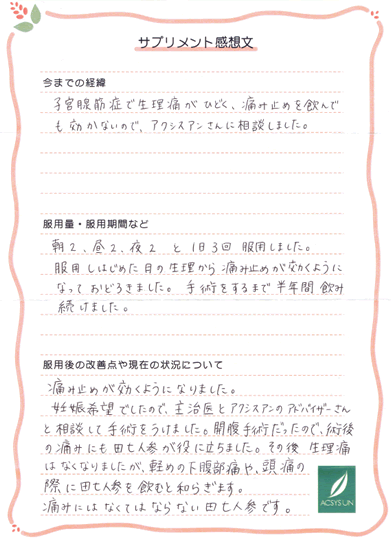 サプリメント感想文
今までの経緯
子宮腺筋症で生理痛がひどく、痛み止めを飲んで
も効かないので、アクシスアンさんに相談しました。
服用量・服用期間など
朝2、昼2、夜2 と 1日3回 服用しました。
服用しはじめた月の生理から痛み止めが効くように
なっておどろきました。 手術をするまで半年間飲み
続けました。
服用後の改善点や現在の状況について
痛み止めが効くようになりました。
妊娠希望でしたので、主治医とアクシスアンのアドバイザーさん
と相談して手術をうけました。開腹手術だったので、術後
の痛みにも田七人参が役に立ちました。その後 生理痛
はなくなりましたが、軽めの下腹部痛や、頭痛の
際に田七人参を飲むと和らぎます。
痛みにはなくてはならない田七人参です。
ACSYSUN